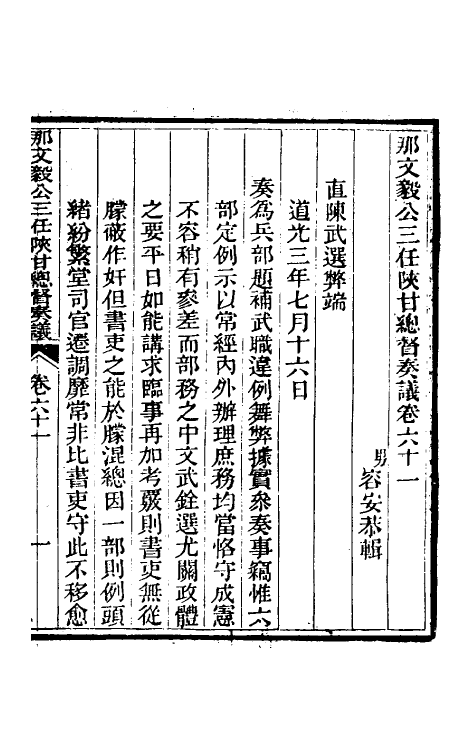 那文毅公三任陜甘總督奏議卷六十一
男容安恭輯
直陳武選弊端
道光三年七月十六日
奏爲兵部題補武職違例舞弊據實叅奏事竊惟六
部定例示以常經內外辦理庶務均當恪守成憲
不容稍有參差而部務之中文武銓選尤關政體
之要平日如能講求臨事再加考覈則書吏無從
朦蔽作奸但書吏之能於朦混總因一部則例頭
緒紛繁堂司官遷調靡常非比書吏守此不移愈
那文毅公三任陜甘總督奏議 卷六十一 一